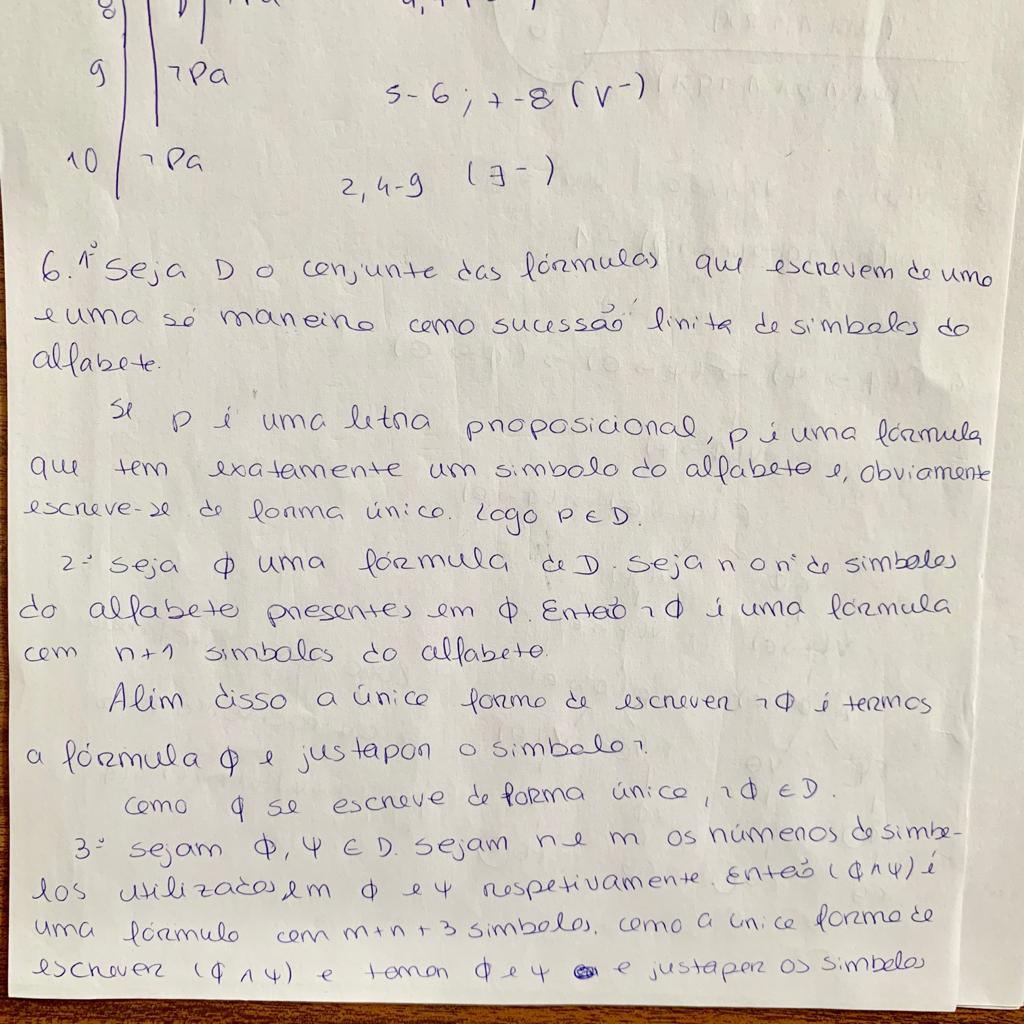 8
9 ¬Pa 5-6; 7-8 (∨-)
10 ¬Pa 2, 4-9 (∃-)
6. 1º Seja D o conjunto das fórmulas que escrevem de uma
e uma só maneira como sucessão finita de simbolos do
alfabeto.
Se p é uma letra proposicional, p é uma fórmula
que tem exatamente um simbolo do alfabeto e, obviamente
escreve-se de forma único. Logo p ∈ D.
2º Seja ϕ uma fórmula de D. Seja n o nº de simbolos
do alfabeto presentes em ϕ. Então ¬ϕ é uma fórmula
com n+1 simbolos do alfabeto.
Além disso a única forma de escrever ¬ϕ é termos
a fórmula ϕ e justapor o simbolo ¬.
Como ϕ se escreve de forma única, ¬ϕ ∈ D.
3º Sejam ϕ, ψ ∈ D. Sejam n e m os números de simbo-
los utilizados em ϕ e ψ respetivamente. Então (ϕ∧ψ) é
uma fórmula com m+n+3 simbolos. Como a única forma de
escrever (ϕ∧ψ) e tomar ϕ e ψ e justapor os simbolos